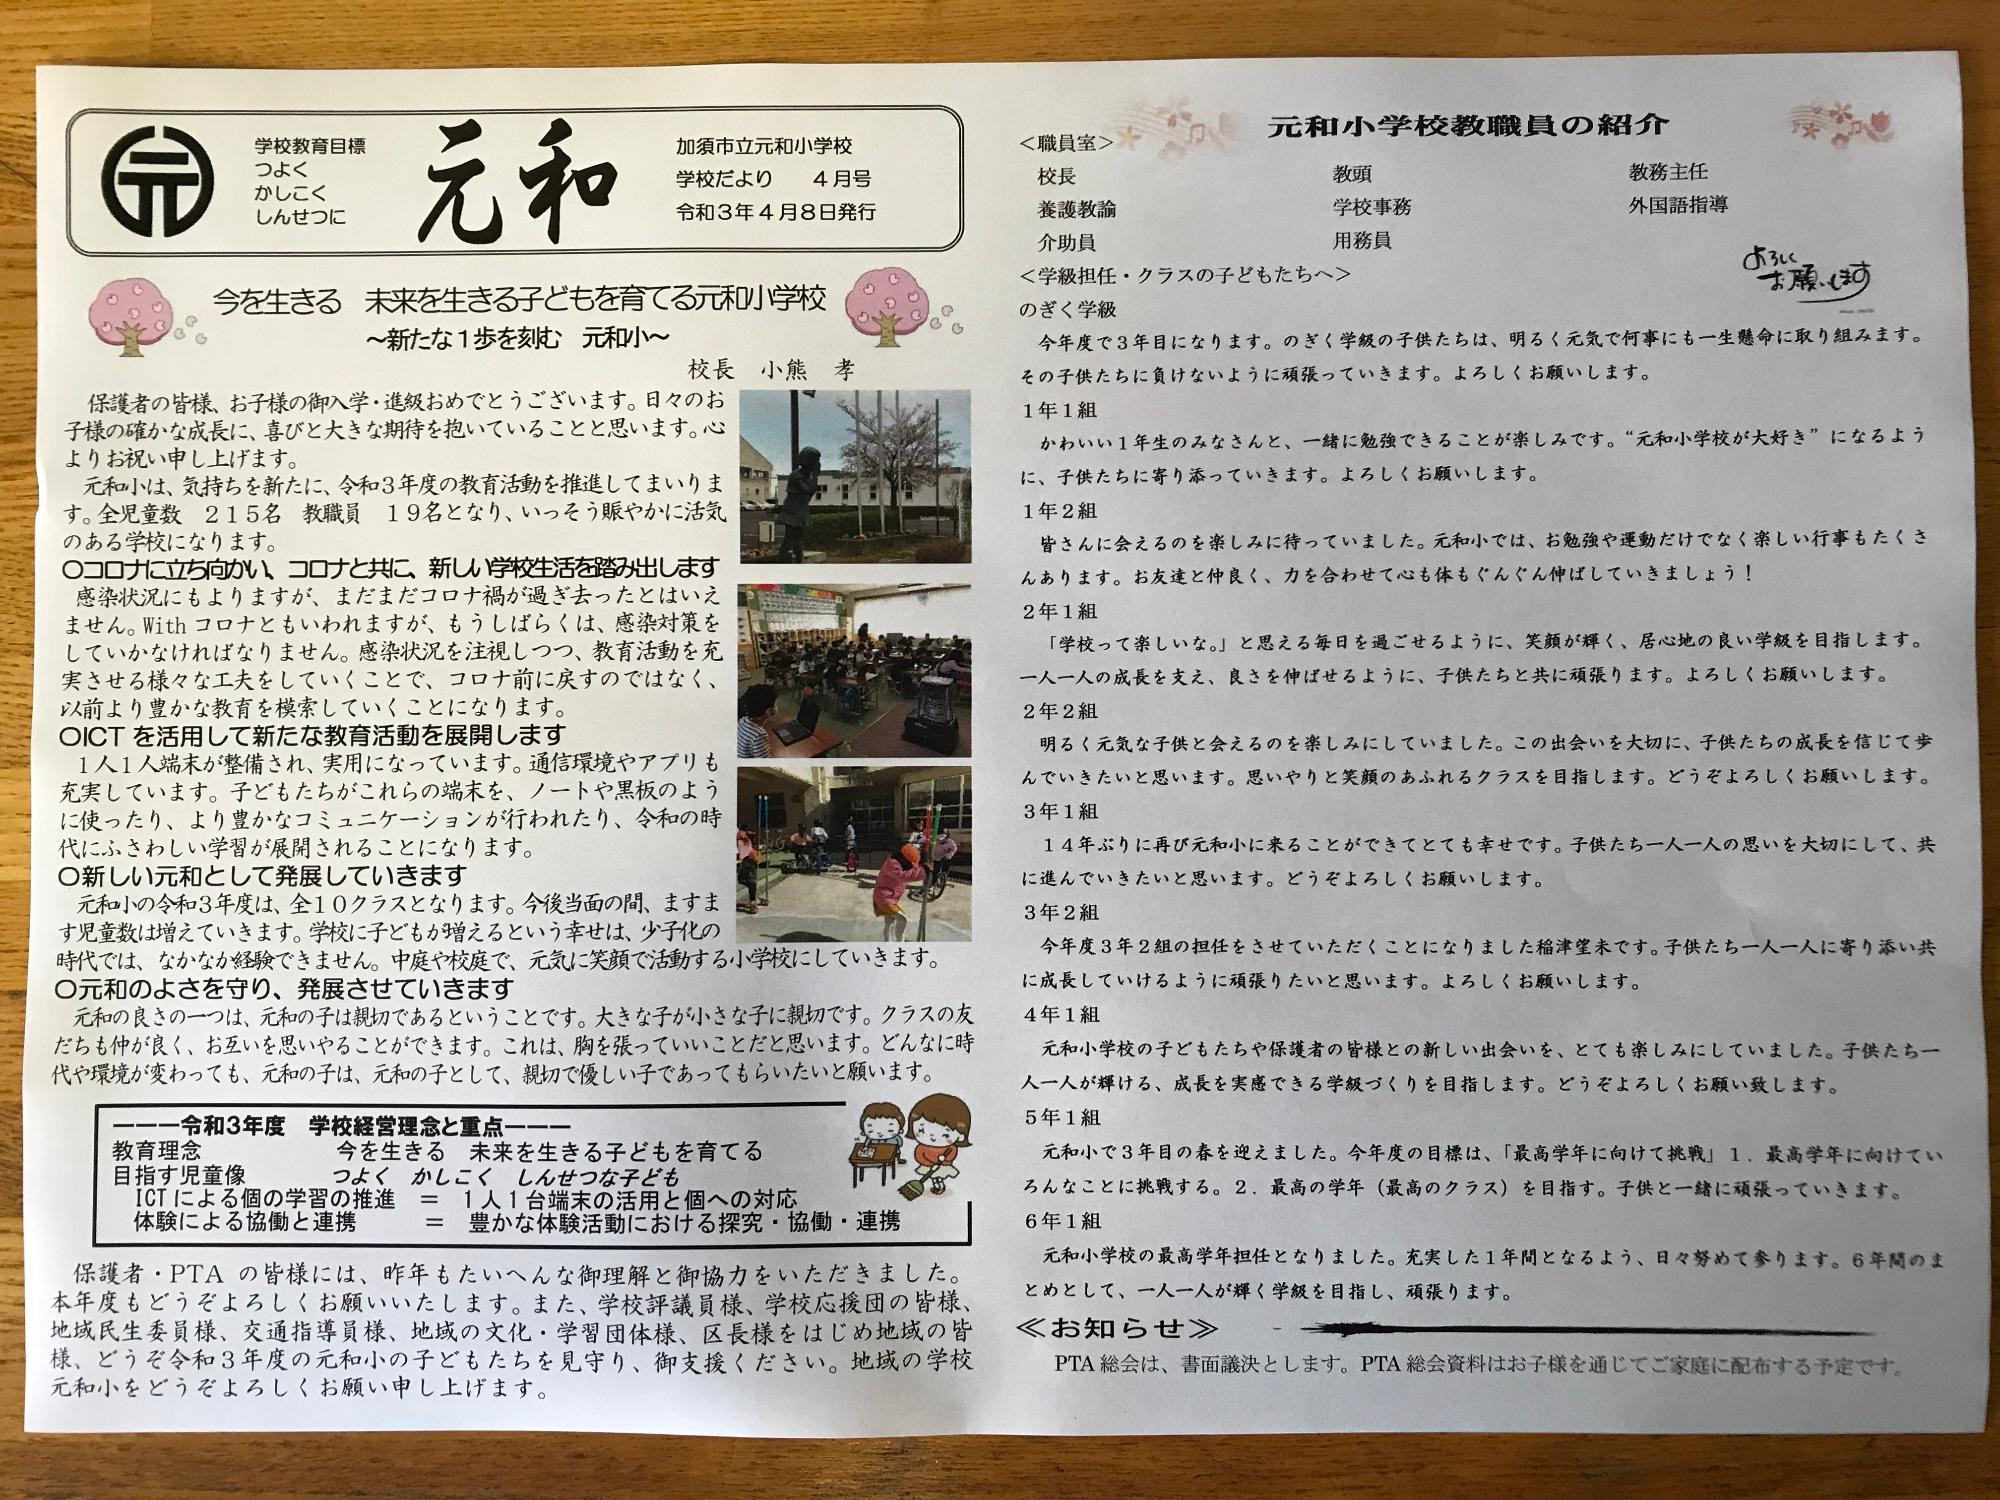 元
学校教育目標
つよく
かしこく
しんせつに
元和
加須市立元和小学校
学校だより　　4月号
令和3年4月8日発行
今を生きる　未来を生きる子どもを育てる元和小学校
～新たな1歩を刻む　元和小～
校長　小熊　孝
保護者の皆様、お子様の御入学・進級おめでとうございます。日々のお
子様の確かな成長に、喜びと大きな期待を抱いていることと思います。心
よりお祝い申し上げます。
元和小は、気持ちを新たに、令和3年度の教育活動を推進してまいりま
す。全児童数　215名　教職員　19名となり、いっそう賑やかに活気
のある学校になります。
○コロナに立ち向かい、コロナと共に、新しい学校生活を踏み出します
感染状況にもよりますが、まだまだコロナ禍が過ぎ去ったとはいえ
ません。Withコロナともいわれますが、もうしばらくは、感染対策を
していかなければなりません。感染状況を注視しつつ、教育活動を充
実させる様々な工夫をしていくことで、コロナ前に戻すのではなく、
以前より豊かな教育を模索していくことになります。
○ICTを活用して新たな教育活動を展開します
1人1人端末が整備され、実用になっています。通信環境やアプリも
充実しています。子どもたちがこれらの端末を、ノートや黒板のよう
に使ったり、より豊かなコミュニケーションが行われたり、令和の時
代にふさわしい学習が展開されることになります。
○新しい元和として発展していきます
元和小の令和3年度は、全10クラスとなります。今後当面の間、ますま
す児童数は増えていきます。学校に子どもが増えるという幸せは、少子化の
時代では、なかなか経験できません。中庭や校庭で、元気に笑顔で活動する小学校にしていきます。
○元和のよさを守り、発展させていきます
元和の良さの一つは、元和の子は親切であるということです。大きな子が小さな子に親切です。クラスの友
だちも仲が良く、お互いを思いやることができます。これは、胸を張っていいことだと思います。どんなに時
代や環境が変わっても、元和の子は、元和の子として、親切で優しい子であってもらいたいと願います。
―――令和3年度　学校経営理念と重点―――
教育理念　　　　今を生きる　未来を生きる子どもを育てる
目指す児童像　　　つよく　かしこく　しんせつな子ども
ICTによる個の学習の推進　＝　1人1台端末の活用と個への対応
体験による協働と連携　　　＝　豊かな体験活動における探究・協働・連携
保護者・PTAの皆様には、昨年もたいへんな御理解と御協力をいただきました。
本年度もどうぞよろしくお願いいたします。また、学校評議員様、学校応援団の皆様、
地域民生委員様、交通指導員様、地域の文化・学習団体様、区長様をはじめ地域の皆
様、どうぞ令和3年度の元和小の子どもたちを見守り、御支援ください。地域の学校
元和小をどうぞよろしくお願い申し上げます。
元和小学校教職員の紹介
＜職員室＞
校長　教頭　教務主任
養護教諭　学校事務　外国語指導
介助員　用務員
よろしく
お願いします
＜学級担任・クラスの子どもたちへ＞
のぎく学級
今年度で3年目になります。のぎく学級の子供たちは、明るく元気で何事にも一生懸命に取り組みます。
その子供たちに負けないように頑張っていきます。よろしくお願いします。
1年1組
かわいい1年生のみなさんと、一緒に勉強できることが楽しみです。“元和小学校が大好き”になるよう
に、子供たちに寄り添っていきます。よろしくお願いします。
1年2組
皆さんに会えるのを楽しみに待っていました。元和小では、お勉強や運動だけでなく楽しい行事もたくさ
んあります。お友達と仲良く、力を合わせて心も体もぐんぐん伸ばしていきましょう！
2年1組
「学校って楽しいな。」と思える毎日を過ごせるように、笑顔が輝く、居心地の良い学級を目指します。
一人一人の成長を支え、良さを伸ばせるように、子供たちと共に頑張ります。よろしくお願いします。
2年2組
明るく元気な子供と会えるのを楽しみにしていました。この出会いを大切に、子供たちの成長を信じて歩
んでいきたいと思います。思いやりと笑顔のあふれるクラスを目指します。どうぞよろしくお願いします。
3年1組
14年ぶりに再び元和小に来ることができてとても幸せです。子供たち一人一人の思いを大切にして、共
に進んでいきたいと思います。どうぞよろしくお願いします。
3年2組
今年度3年2組の担任をさせていただくことになりました稲津望未です。子供たち一人一人に寄り添い共
に成長していけるように頑張りたいと思います。よろしくお願いします。
4年1組
元和小学校の子どもたちや保護者の皆様との新しい出会いを、とても楽しみにしていました。子供たち一
人一人が輝ける、成長を実感できる学級づくりを目指します。どうぞよろしくお願い致します。
5年1組
元和小で3年目の春を迎えました。今年度の目標は、「最高学年に向けて挑戦」1．最高学年に向けてい
ろんなことに挑戦する。2．最高の学年（最高のクラス）を目指す。子供と一緒に頑張っていきます。
6年1組
元和小学校の最高学年担任となりました。充実した1年間となるよう、日々努めて参ります。6年間のま
とめとして、一人一人が輝く学級を目指し、頑張ります。
≪お知らせ≫
PTA総会は、書面議決とします。PTA総会資料はお子様を通じてご家庭に配布する予定です。